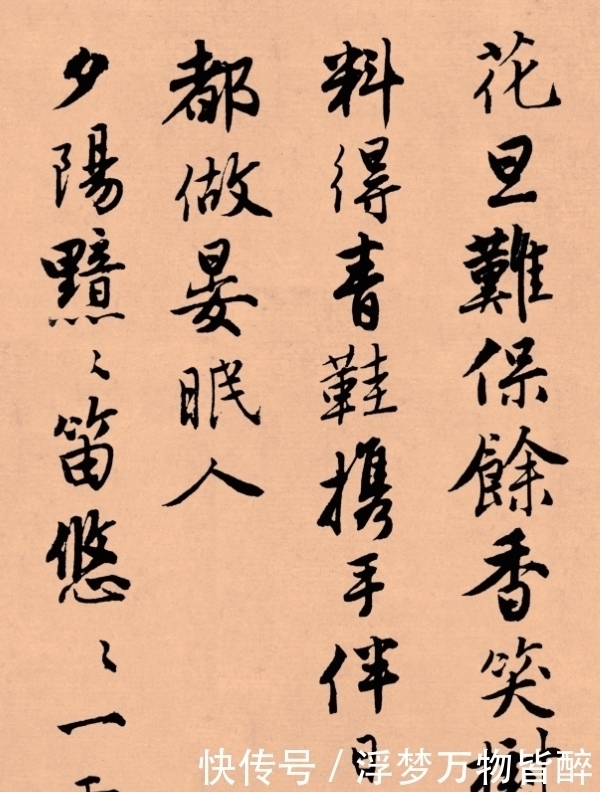 花旦難保餘香笑
料得青鞋攜手伴日
都做晏眠人
夕陽黯〻笛悠〻一
快传号 / 浮梦万物皆醉